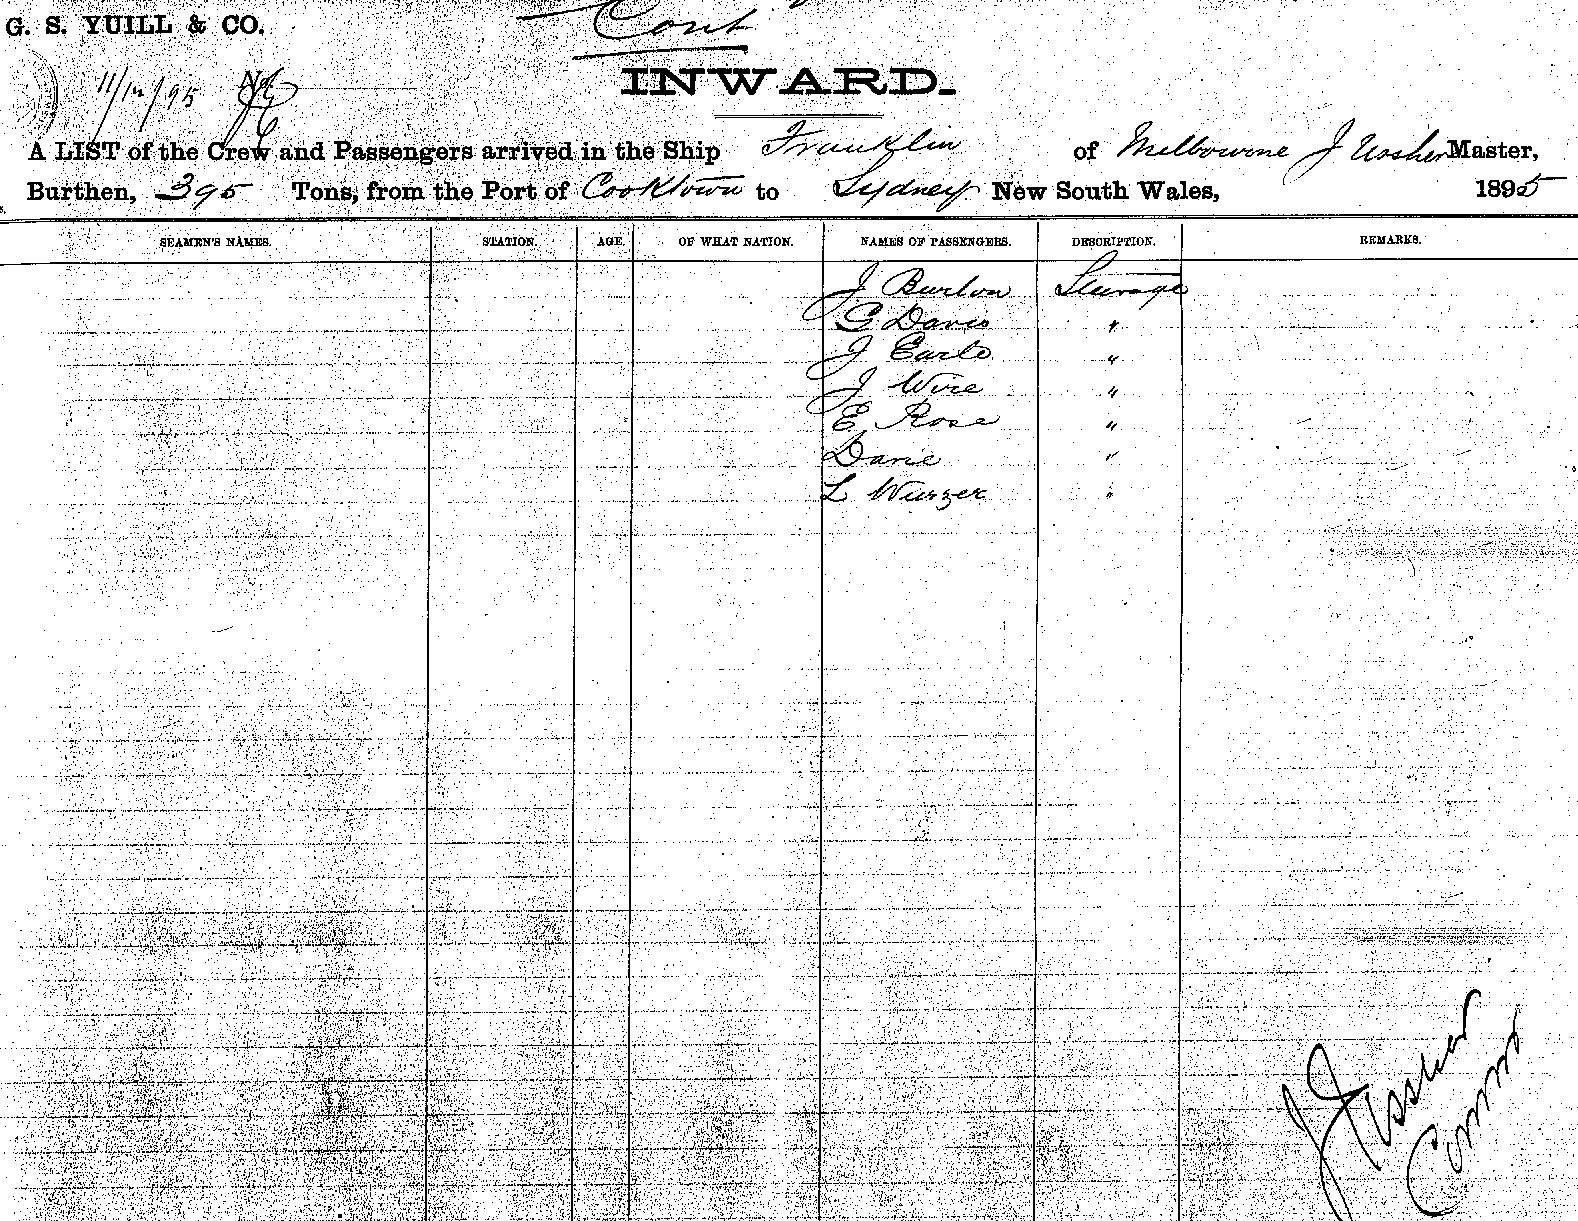 G. S. YUILL & CO.
Cont
11/12/95
INWARD.
A LIST of the Crew and Passengers arrived in the Ship Franklin of Melbourne J Ussher Master,
Burthen, 395 Tons, from the Port of Cooktown to Sydney New South Wales, 1895
SEAMEN'S NAMES. STATION. AGE. OF WHAT NATION. NAMES OF PASSENGERS. DESCRIPTION. REMARKS.
J Burton Steerage
G Davis "
J Earls "
J Wire "
E Rose "
Davie "
L Wurzer "
J Ussher